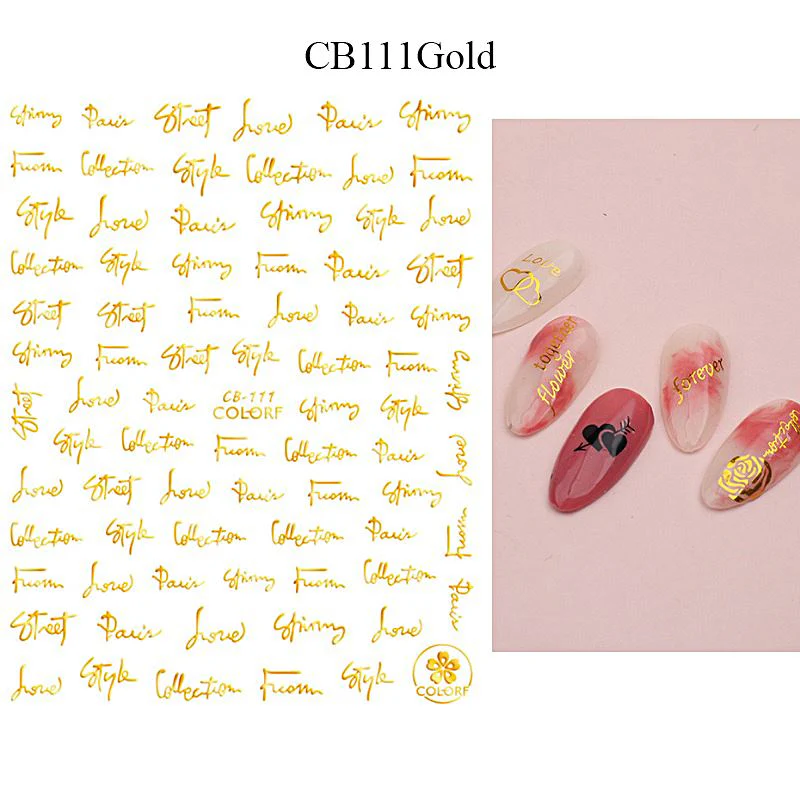 CB111Gold
Spinmy Paris Street Love Paris Spinmy
Fuomn Collection Style Collection Love Fuomn
Style Love Paris Spinmy Style Love
Collection Style Spinmy Fuomn Paris Street
Street Street Fuomn Love Paris Spinmy
Spinmy Fuomn Street Style Collection Fuomn Spinmy
Street Love Paris CB-111 Spinmy Style
COLORF
Style Collection Fuomn Collection Paris Love
Love Street Love Paris Fuomn Spinmy
Collection Style Collection Collection Paris Fuomn
Fuomn Love Paris Spinmy Fuomn Collection Paris
Street Paris Love Spinmy Love
Love Style Collection Fuomn Style
COLORF
Love
together
flower
forever
Collection